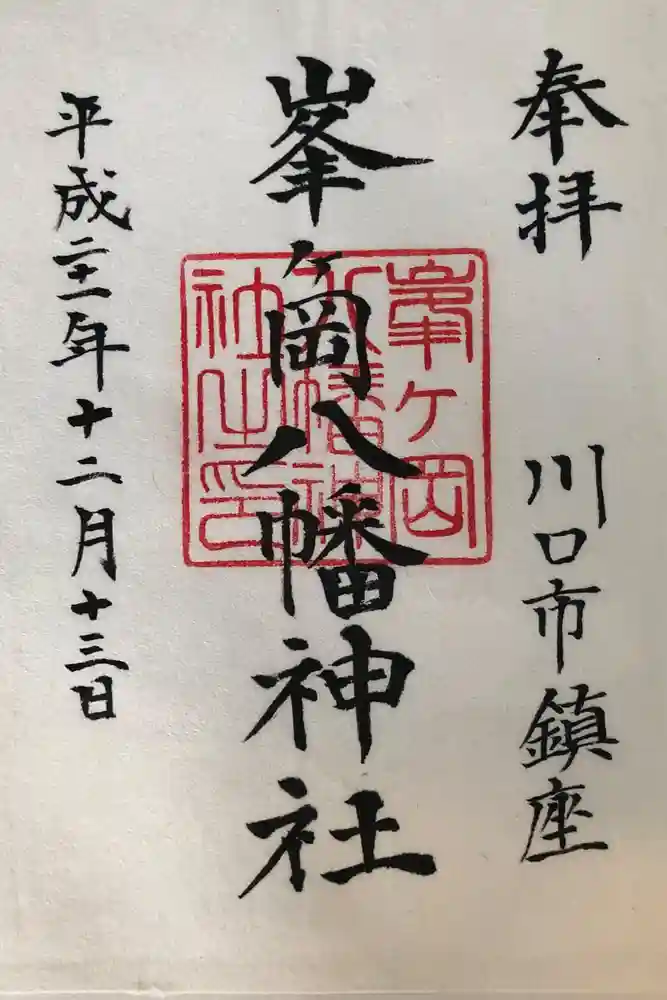 奉拝
川口市鎮座
峯ヶ岡八幡神社
平成二十一年十二月十三日
峯ヶ岡
八幡神
社之印